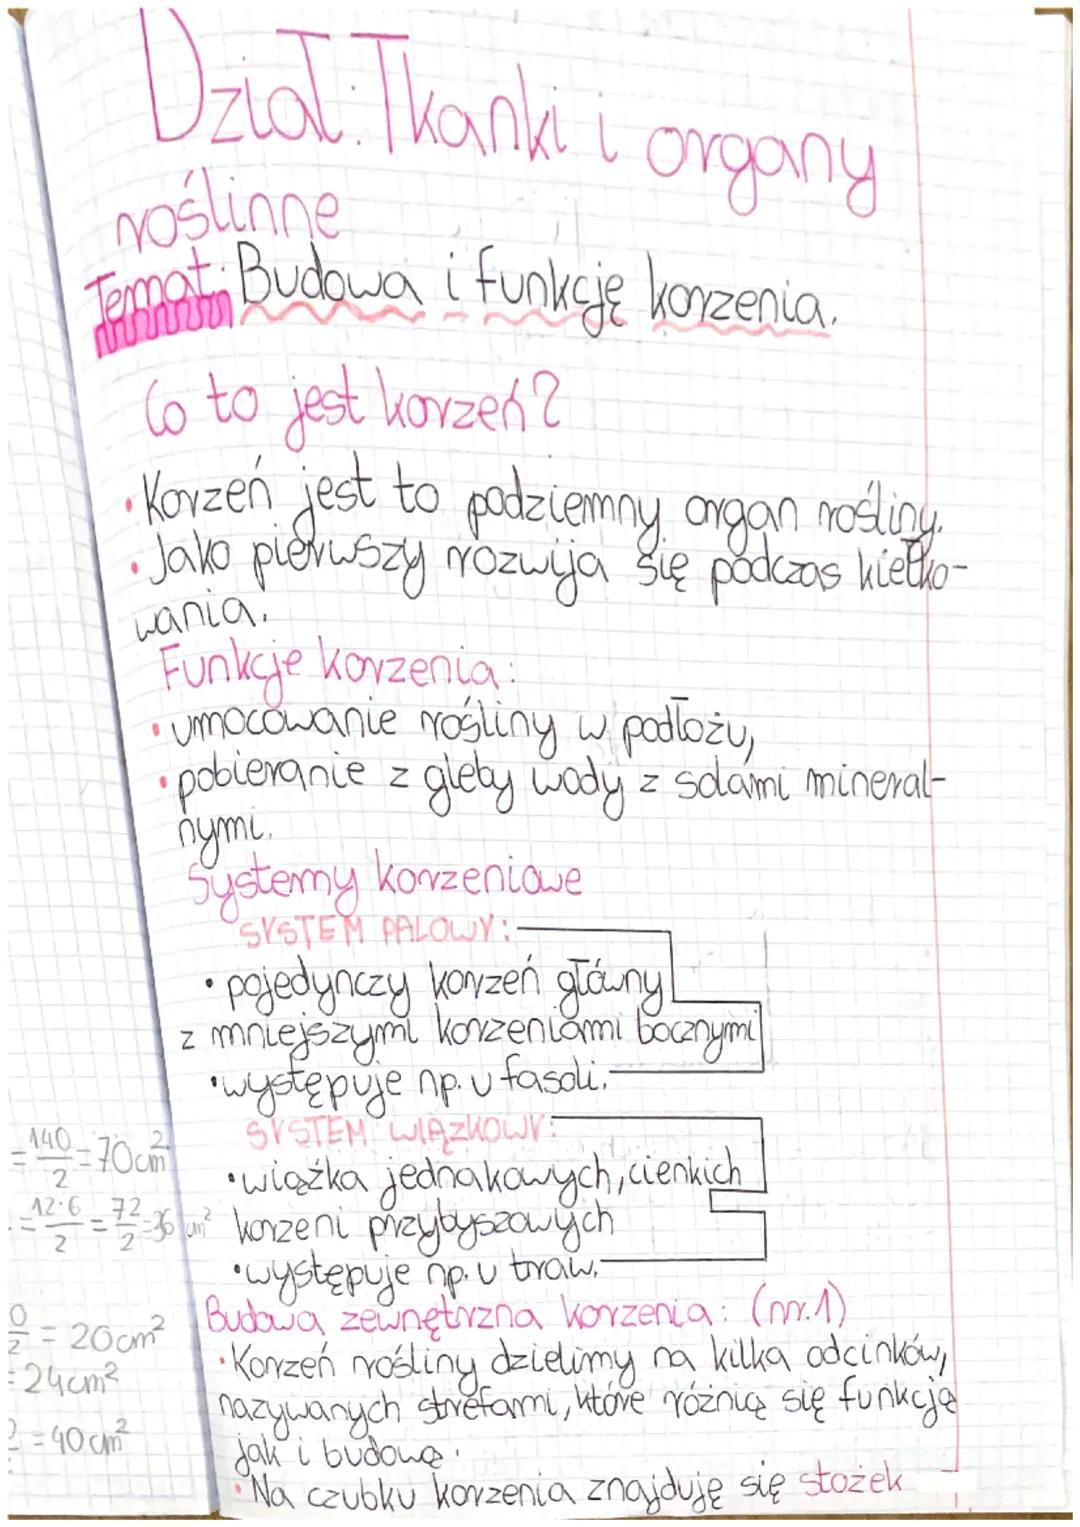 Dział: Tkanki i organy
roślinne
Temat: Budowa i funkcję korzenia.
Co to jest korzeń?
• Korzeń jest to podziemny organ rośliny.
• Jako pierwszy rozwija się podczas kiełko-
wania.
Funkcje korzenia:
• umocowanie rośliny w podłożu,
• pobieranie z gleby wody z solami mineral-
nymi.
Systemy korzeniowe
SYSTEM PALOWY:
• pojedynczy korzeń główny
z mniejszymi korzeniami bocznymi
• występuje np. u fasoli.
SYSTEM WIĄZKOWY:
• wiązka jednakowych, cienkich
korzeni przybyszowych
• występuje np. u traw.
Budowa zewnętrzna korzenia: (nr.1)
• Korzeń rośliny dzielimy na kilka odcinków,
nazywanych strefami, które różnią się funkcją
jak i budową.
• Na czubku korzenia znajduję się stożek
= 140/2 = 70cm²
= 12·6/2 = 72/2 = 36 cm²
0/2 = 20cm²
= 24cm²
2 = 40cm²